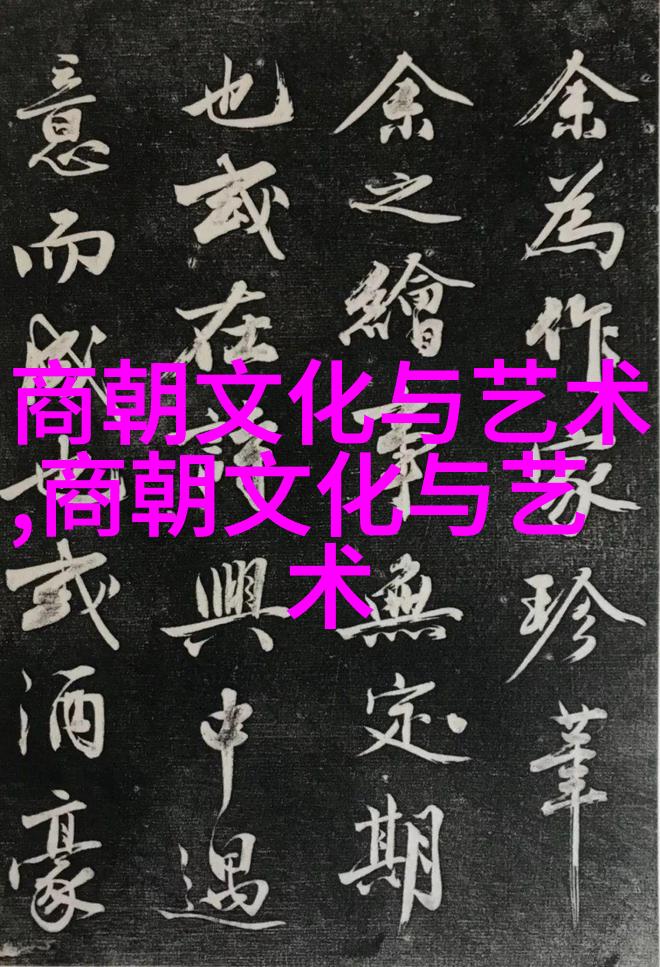 商朝文化与艺术
,商朝文化与艺
术
余為作家珍
余之繪事無定期
也或在詩興中遇
意而成也或酒豪